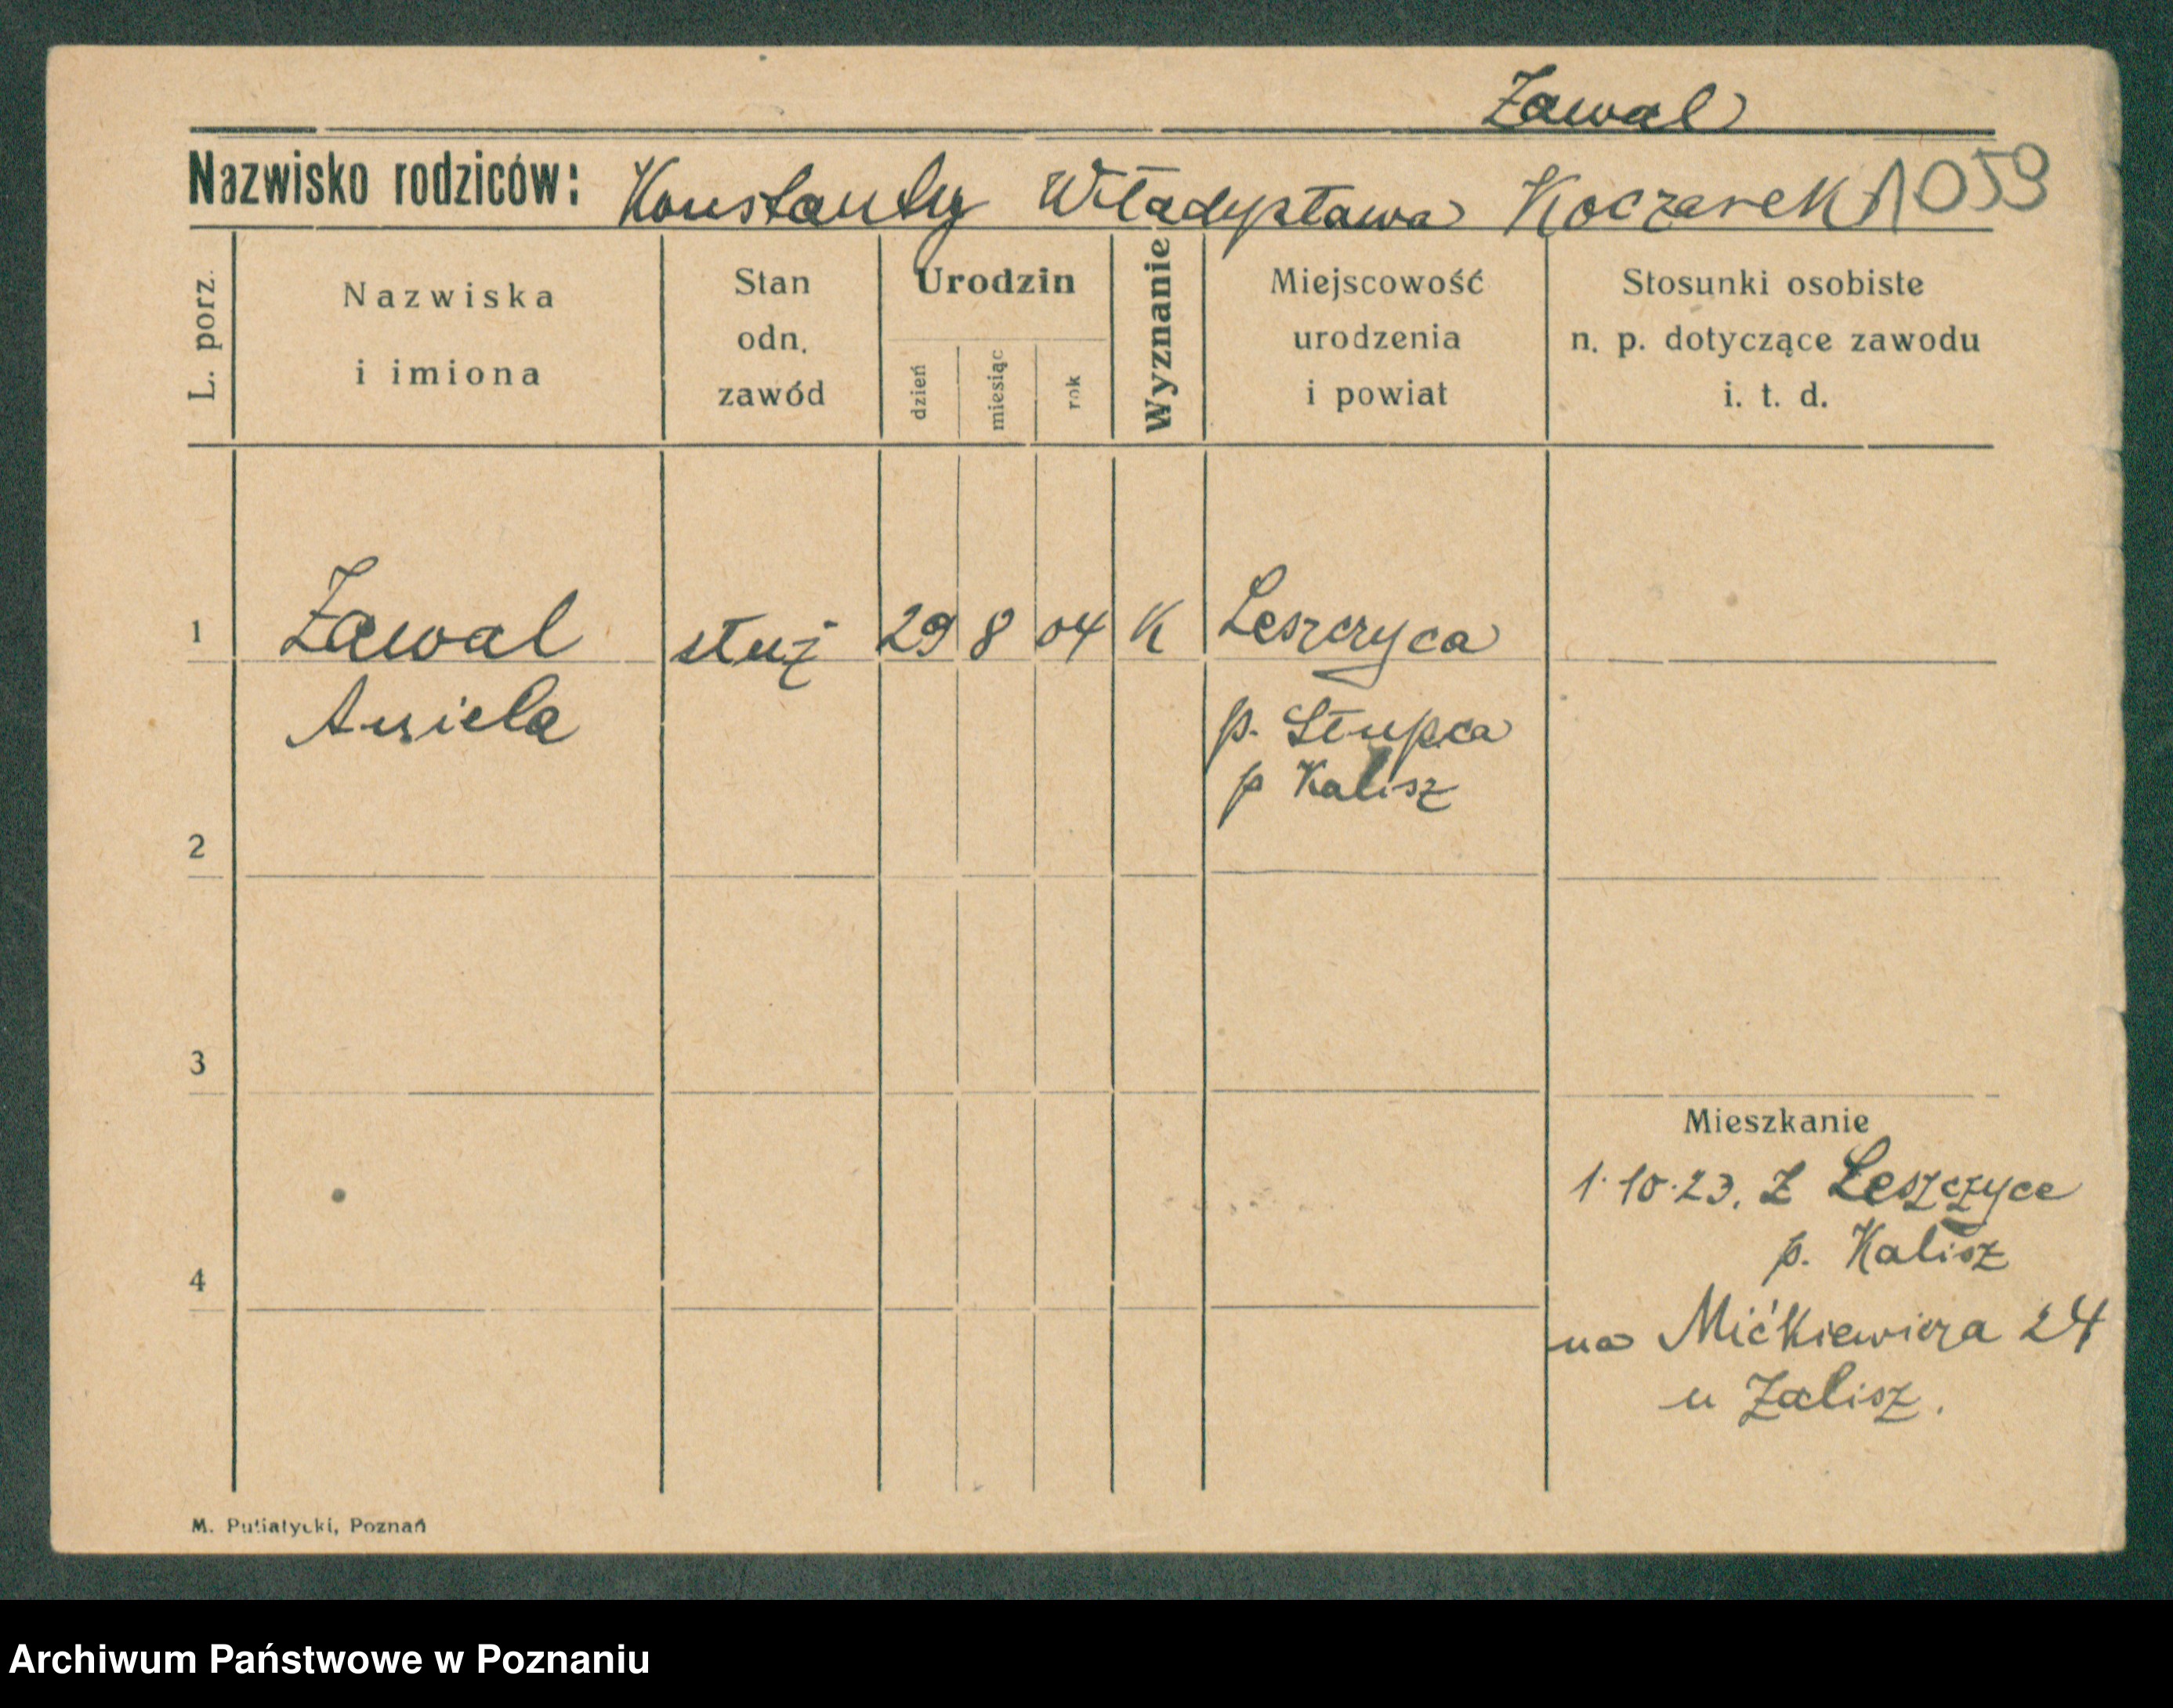 Zawal
Nazwisko rodziców: Konstanty Władysława Koczarek 1059
L. porz.
Nazwiska
i imiona
Stan
odn.
zawód
Urodzin
dzień
miesiąc
rok
Wyznanie
Miejscowość
urodzenia
i powiat
Stosunki osobiste
n. p. dotyczące zawodu
i. t. d.
1 Zawal służ 29 8 04 K Leszczyca
Aniela
p. Słupca
p Kalisz
2
3
Mieszkanie
1.10.23. Z Leszczyce
p. Kalisz
4
na Mićkiewicza 24
u Zalisz.
M. Putiatycki, Poznań
Archiwum Państwowe w Poznaniu